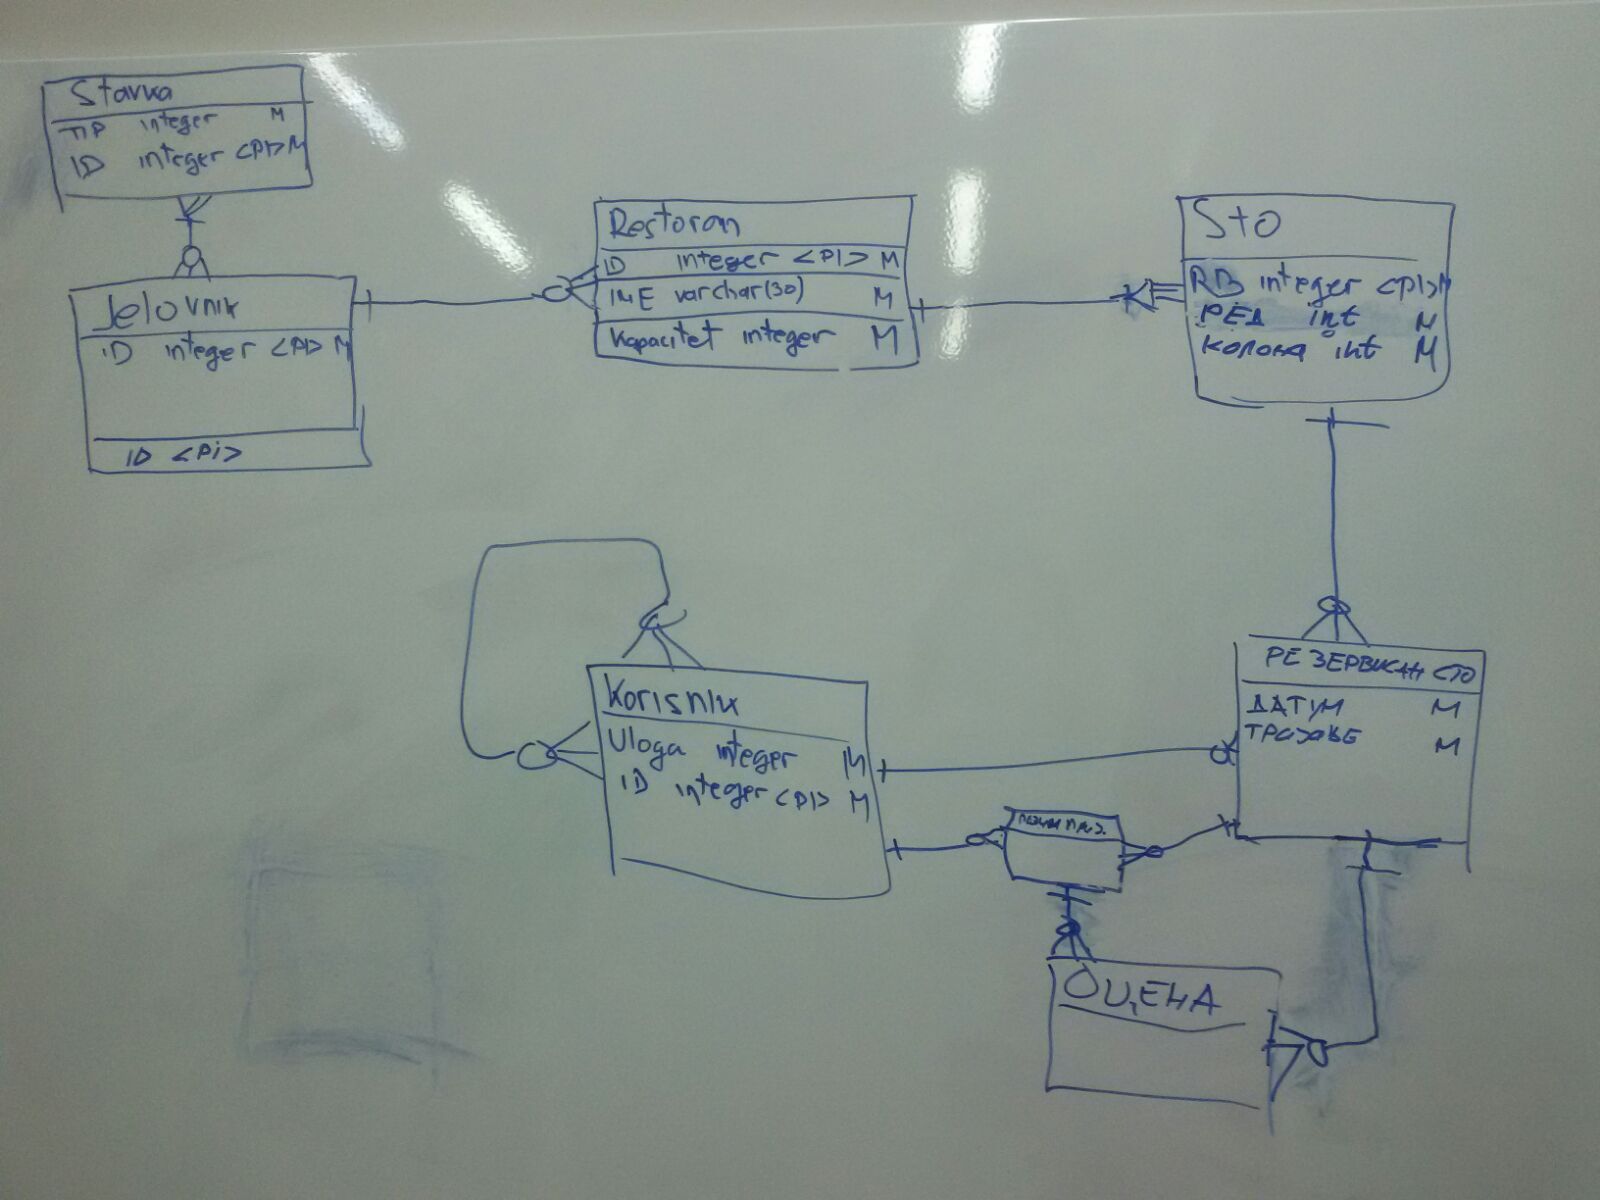 Stavka
TIP integer M
ID integer <PI> M
Jelovnik
ID integer <PI> M
ID <Pi>
Restoran
ID integer <PI> M
IME varchar(30) M
Kapacitet integer M
Sto
RB integer <PI> M
РЕД int M
Колона int M
Korisnik
Uloga integer M
ID integer <PI> M
РЕЗЕРВИСАН СТО
ДАТУМ M
ТРАЈАЊЕ M
ОЦЕНА